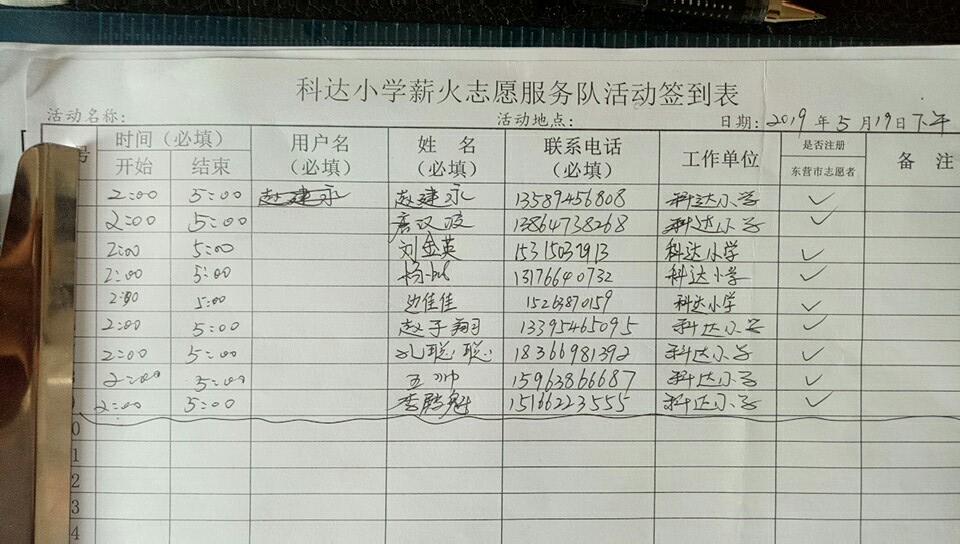 科达小学薪火志愿服务队活动签到表
活动名称: 活动地点: 日期: 2019年5月19日下午
号 时间(必填) 用户名(必填) 姓 名(必填) 联系电话(必填) 工作单位(必填) 是否注册东营市志愿者 备 注
开始 结束
2:00 5:00 赵建永 赵建永 13589456808 科达小学 ✓
2:00 5:00 13864738268 科达小学 ✓
2:00 5:00 刘金英 科达小学 ✓
2:00 5:00 杨 13176640732 科达小学 ✓
2:00 5:00 边佳佳 15263870159 科达小学 ✓
2:00 5:00 赵子翔 13395465095 科达小学 ✓
2:00 5:00 孔聪聪 18366981392 科达小学 ✓
2:00 5:00 王帅 15963866687 科达小学 ✓
2:00 5:00 李鹏 15166223555 科达小学 ✓
0
1
2
3
4